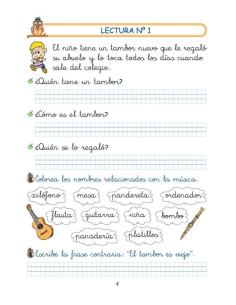 LECTURA Nº 1
El niño tiene un tambor nuevo que le regaló
su abuelo y lo toca todos los días cuando
sale del colegio.
¿Quién tiene un tambor?
¿Cómo es el tambor?
¿Quién se lo regaló?
Colorea los nombres relacionados con la música.
xilófono mesa pandereta ordenador
flauta guitarra niña bombo
panadería platillos
Escribe la frase contraria: "El tambor es viejo".
4